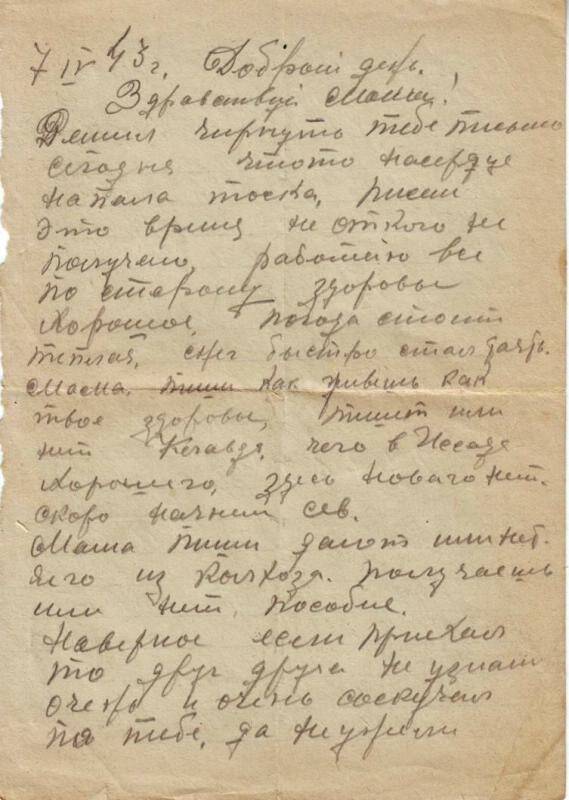 7 IV 43 г. Добрый день.
Здравствуй Мама!
Решил чиркнуть тебе письмо
сегодня чтото насердце
напала тоска, писем
это время не откого не
получаю, работаю все
по старому здоровье
хорошое, погода стоит
теплая, снег быстро стал таять.
Мама, пиши как живешь как
твое здоровье, пишет или
нет чего в
хорошего, здесь новаго нет.
скоро начнем сев.
Мама пиши дают или нет.
из колхоза. Получаешь
или нет пособие.
Наверное если приехал
то друг друга не узнал
очень и очень соскучал
по тебе, да неужели